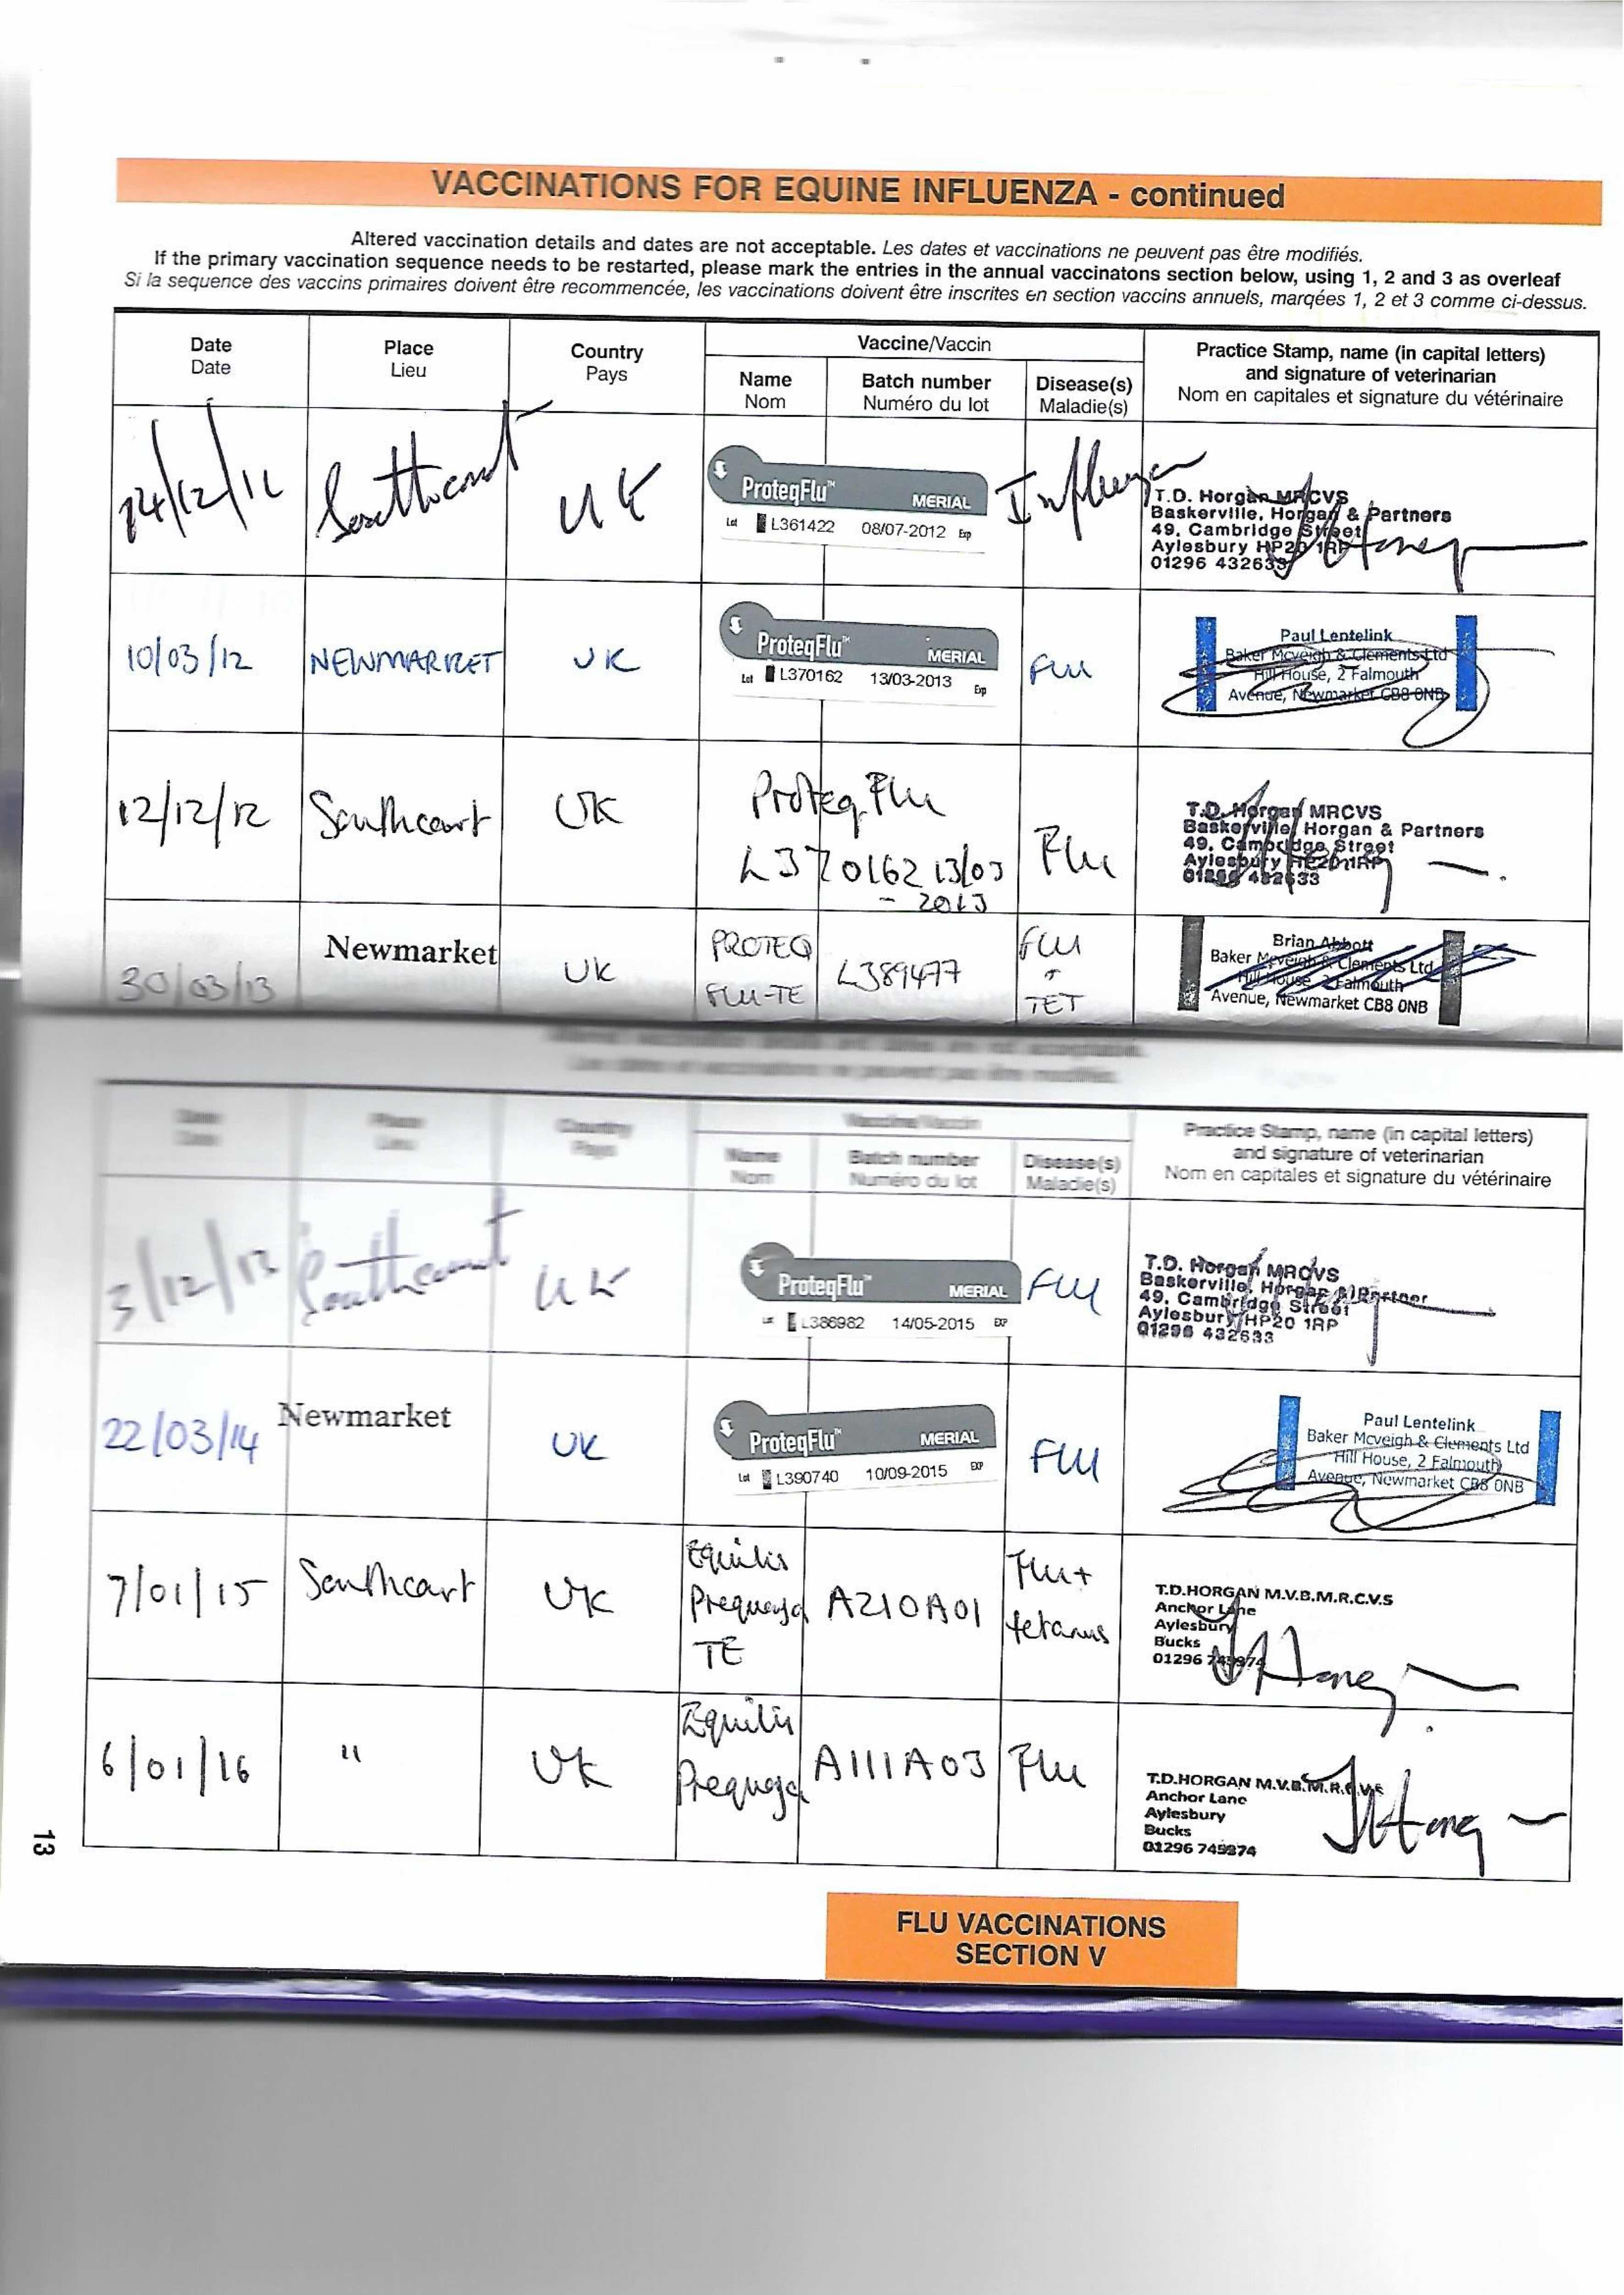 VACCINATIONS FOR EQUINE INFLUENZA - continued
Altered vaccination details and dates are not acceptable. Les dates et vaccinations ne peuvent pas être modifiés.
If the primary vaccination sequence needs to be restarted, please mark the entries in the annual vaccinatons section below, using 1, 2 and 3 as overleaf
Si la sequence des vaccins primaires doivent être recommencée, les vaccinations doivent être inscrites en section vaccins annuels, marqées 1, 2 et 3 comme ci-dessus.
Date
Date
Place
Lieu
Country
Pays
Vaccine/Vaccin
Name
Nom
Batch number
Numéro du lot
Disease(s)
Maladie(s)
Practice Stamp, name (in capital letters)
and signature of veterinarian
Nom en capitales et signature du vétérinaire
Southcourt
UK
ProteqFlu™ MERIAL
Lot L361422 08/07-2012 Exp
Influenza
T.D. Horgan MRCVS
Baskerville, Horgan & Partners
49, Cambridge Street
Aylesbury HP20 1RP
01296 432633
10/03/12
NEWMARKET
UK
ProteqFlu™ MERIAL
Lot L370162 13/03-2013 Exp
FLU
Paul Lentelink
Baker Mcveigh & Clements Ltd
Hill House, 2 Falmouth
Avenue, Newmarket CB8 0NB
12/12/12
Southcourt
UK
Proteq Flu
L370162 13/03
- 2013
Flu
T.D. Horgan MRCVS
Baskerville, Horgan & Partners
49, Cambridge Street
Aylesbury HP20 1RP
01296 432633
30/03/13
Newmarket
UK
PROTEQ
FLU-TE
L389477
FLU
+
TET
Brian Abbott
Baker Mcveigh & Clements Ltd
Hill House, 2 Falmouth
Avenue, Newmarket CB8 0NB
Les dates et vaccinations ne peuvent pas être modifiés.
Date
Date
Place
Lieu
Country
Pays
Vaccine/Vaccin
Name
Nom
Batch number
Numéro du lot
Disease(s)
Maladie(s)
Practice Stamp, name (in capital letters)
and signature of veterinarian
Nom en capitales et signature du vétérinaire
3/12/13
Southcourt
UK
ProteqFlu™ MERIAL
L386982 14/05-2015 EXP
FLU
T.D. Horgan MRCVS
Baskerville, Horgan & Partner
49, Cambridge Street
Aylesbury HP20 1RP
01296 432633
22/03/14
Newmarket
UK
ProteqFlu™ MERIAL
Lot L390740 10/09-2015 EXP
FLU
Paul Lentelink
Baker Mcveigh & Clements Ltd
Hill House, 2 Falmouth
Avenue, Newmarket CB8 0NB
7/01/15
Southcourt
UK
Equilis
Prequenza
TE
A210A01
Flu+
tetanus
T.D.HORGAN M.V.B.M.R.C.V.S
Anchor Lane
Aylesbury
Bucks
01296 745974
6/01/16
"
UK
Equilis
Prequenza
A111A03
Flu
T.D.HORGAN M.V.B.M.R.C.V.S
Anchor Lane
Aylesbury
Bucks
01296 745974
13
FLU VACCINATIONS
SECTION V